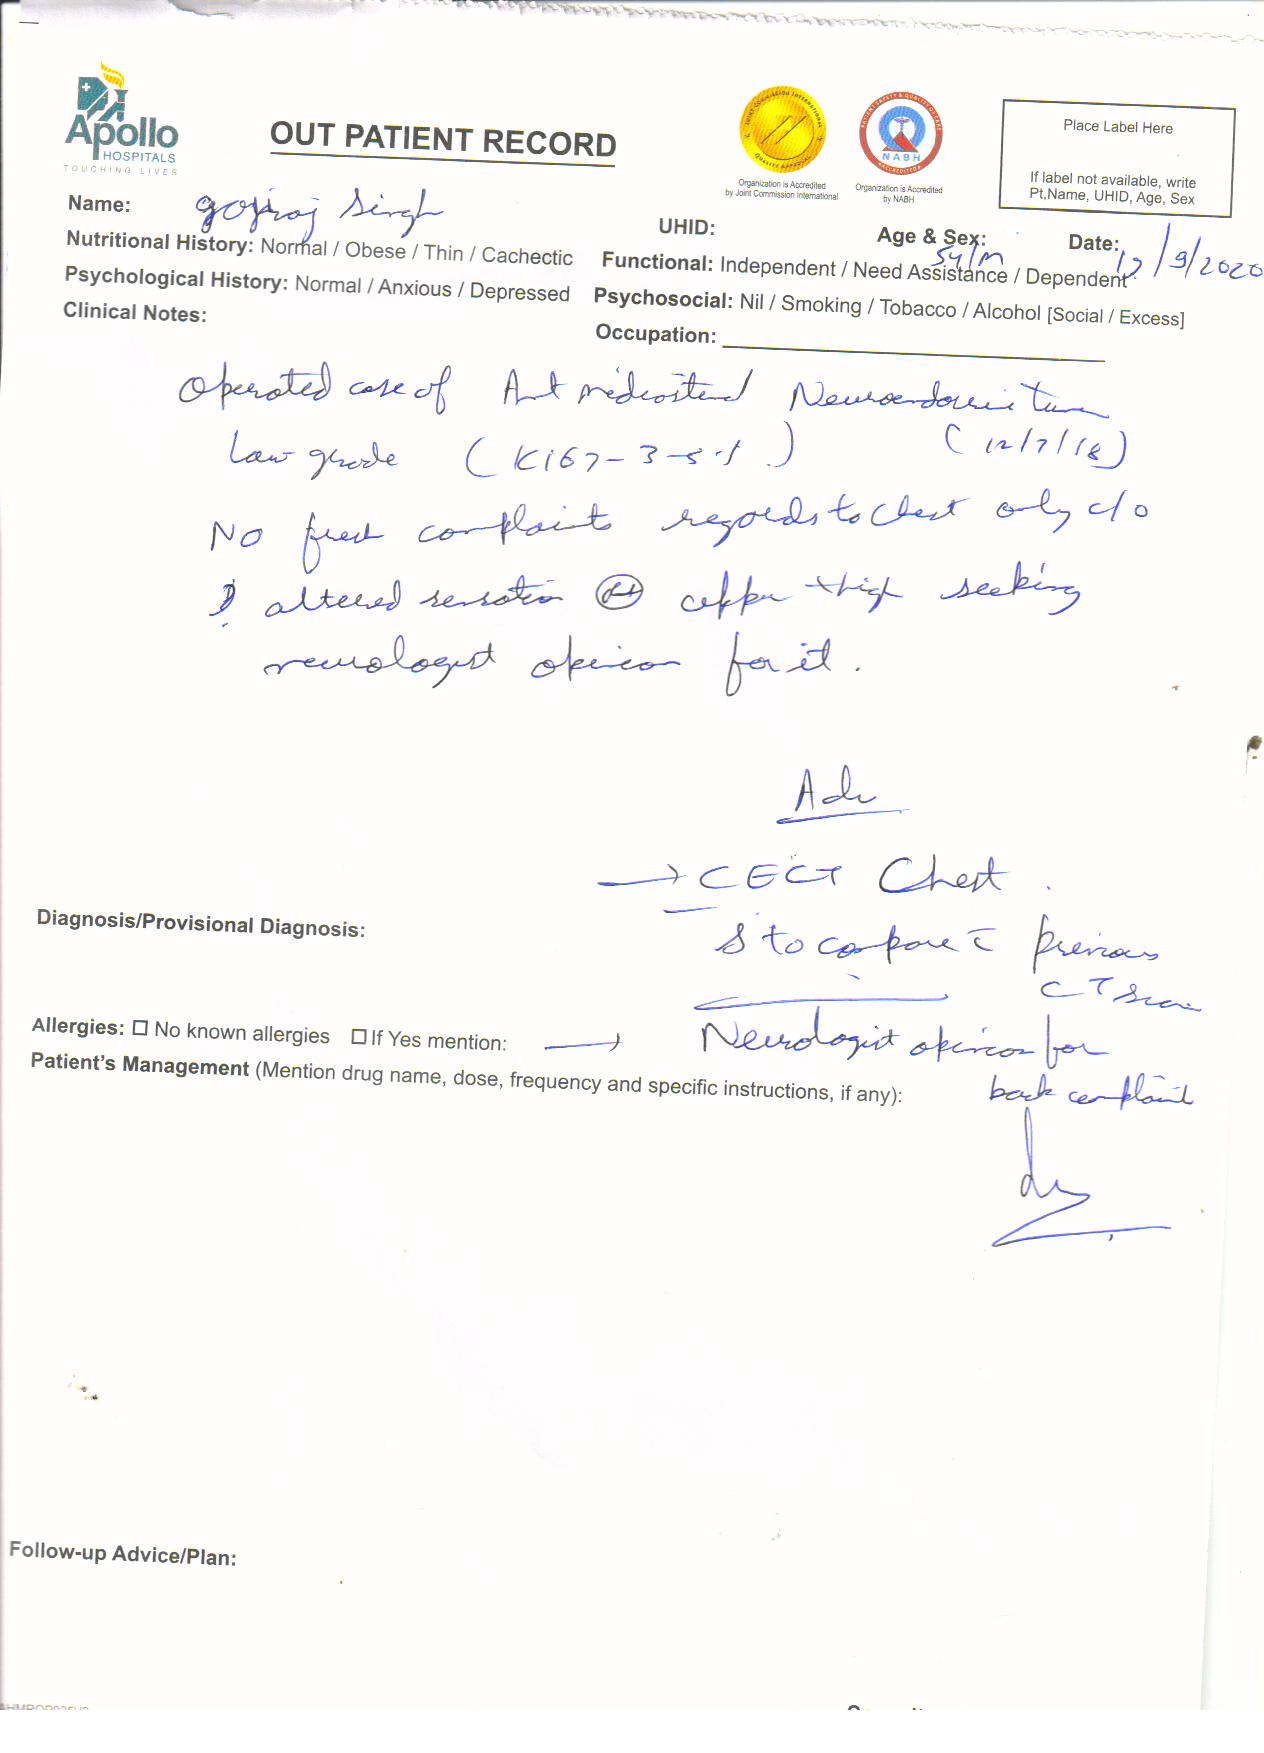 Apollo
HOSPITALS
TOUCHING LIVES
OUT PATIENT RECORD
JOINT COMMISSION INTERNATIONAL
QUALITY APPROVAL
Organization is Accredited
by Joint Commission International
NABH
ACCREDITED
Organization is Accredited
by NABH
Place Label Here
If label not available, write
Pt,Name, UHID, Age, Sex
Name: gojraj Singh
UHID:
Age & Sex: 54/M
Date: 12/9/2020
Nutritional History: Normal / Obese / Thin / Cachectic
Functional: Independent / Need Assistance / Dependent
Psychological History: Normal / Anxious / Depressed
Psychosocial: Nil / Smoking / Tobacco / Alcohol [Social / Excess]
Clinical Notes:
Occupation:
Operated case of Ant mediastinal Neuroendocrine tumor
Low grade (Ki67-3-5%) (12/7/18)
No fresh complaints regards to chest only c/o
altered sensation upper thigh seeking
neurologist opinion for it.
Adv
→ CECT Chest.
Diagnosis/Provisional Diagnosis:
to compare c̄ previous
CT Scan
Allergies: ☐ No known allergies ☐ If Yes mention:
→ Neurologist opinion for
Patient's Management (Mention drug name, dose, frequency and specific instructions, if any):
back complaint
Follow-up Advice/Plan: